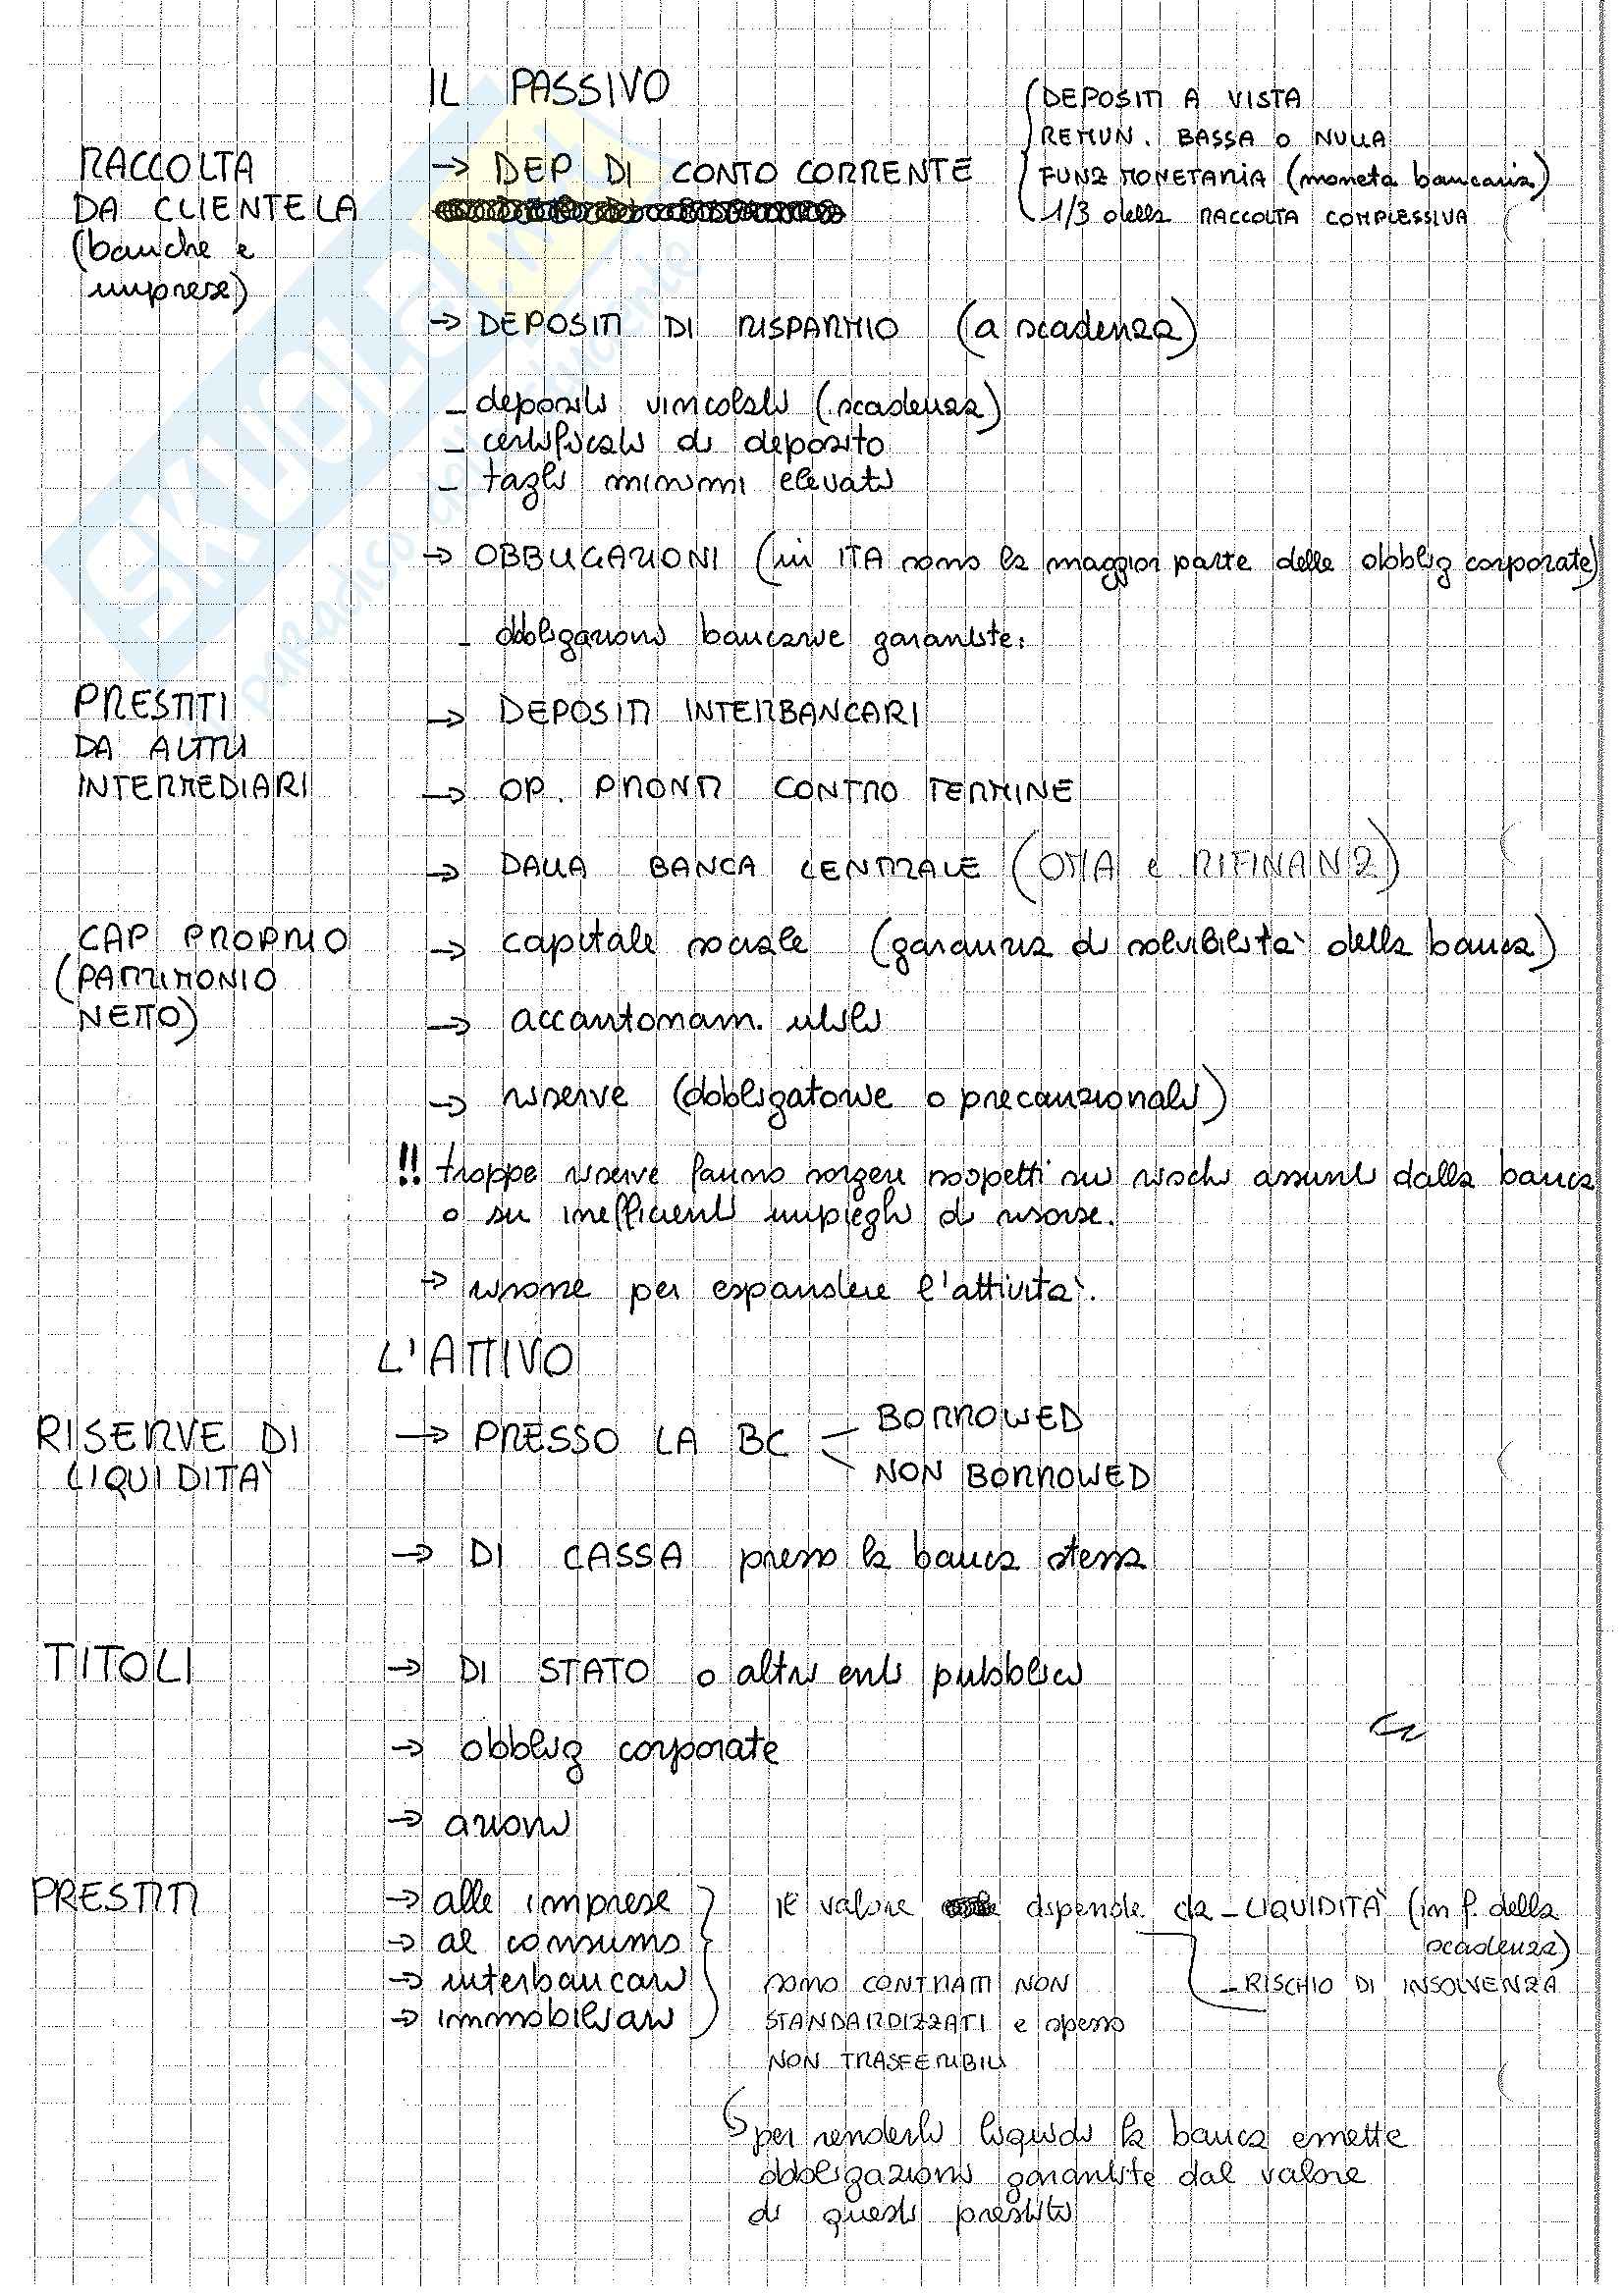 IL PASSIVO
RACCOLTA
DA CLIENTELA
(banche e
imprese)
→ DEP DI CONTO CORRENTE
DEPOSITI A VISTA
REMUN. BASSA O NULLA
FUNZ MONETARIA (moneta bancaria)
1/3 della RACCOLTA COMPLESSIVA
→ DEPOSITI DI RISPARMIO (a scadenza)
- depositi vincolati (scadenza)
- certificati di deposito
- tagli minimi elevati
→ OBBLIGAZIONI (in ITA sono la maggior parte delle obblig corporate)
- obbligazioni bancarie garantite.
PRESTITI
DA ALTRI
INTERMEDIARI
→ DEPOSITI INTERBANCARI
→ OP. PRONTI CONTRO TERMINE
→ DALLA BANCA CENTRALE (OMA e RIFINANZ)
CAP PROPRIO
(PATRIMONIO
NETTO)
→ capitale sociale (garanzia di solvibilità della banca)
→ accantonam. utili
→ riserve (obbligatorie o precauzionali)
!! troppe riserve fanno sorgere sospetti sui rischi assunti dalla banca
o su inefficienti impieghi di risorse.
→ risorse per espandere l'attività.
L'ATTIVO
RISERVE DI
LIQUIDITÀ
→ PRESSO LA BC
BORROWED
NON BORROWED
→ DI CASSA presso la banca stessa
TITOLI
→ DI STATO o altri enti pubblici
→ obblig corporate
→ azioni
PRESTITI
→ alle imprese
→ al consumo
→ interbancari
→ immobiliari
il valore dipende da - LIQUIDITÀ (in f. della
scadenza)
- RISCHIO DI INSOLVENZA
sono CONTRATTI NON
STANDARDIZZATI e spesso
NON TRASFERIBILI
per renderli liquidi la banca emette
obbligazioni garantite dal valore
di questi prestiti